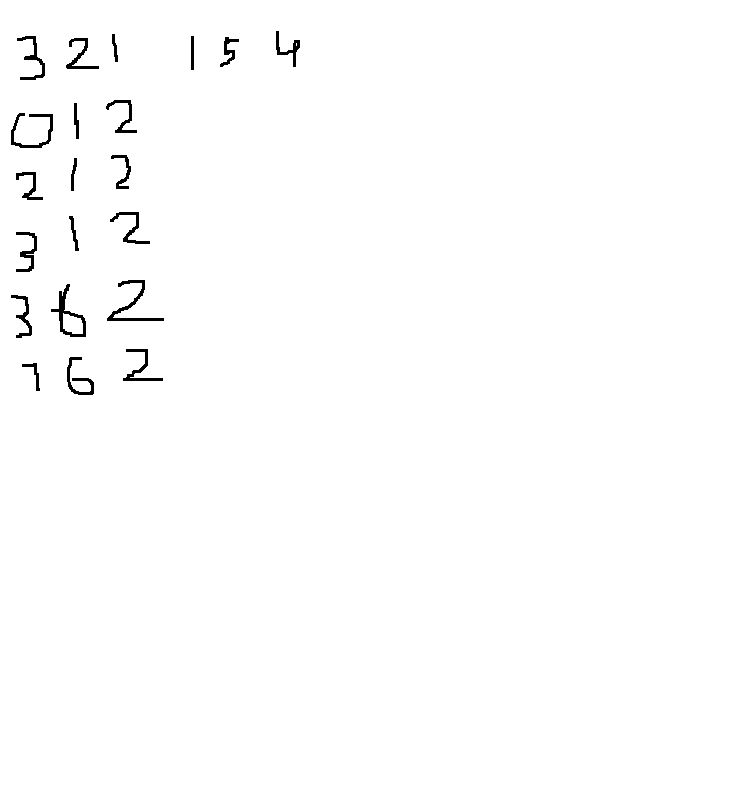 3 2 1 1 5 4
0 1 2
2 1 2
3 1 2
3 6 2
7 6 2